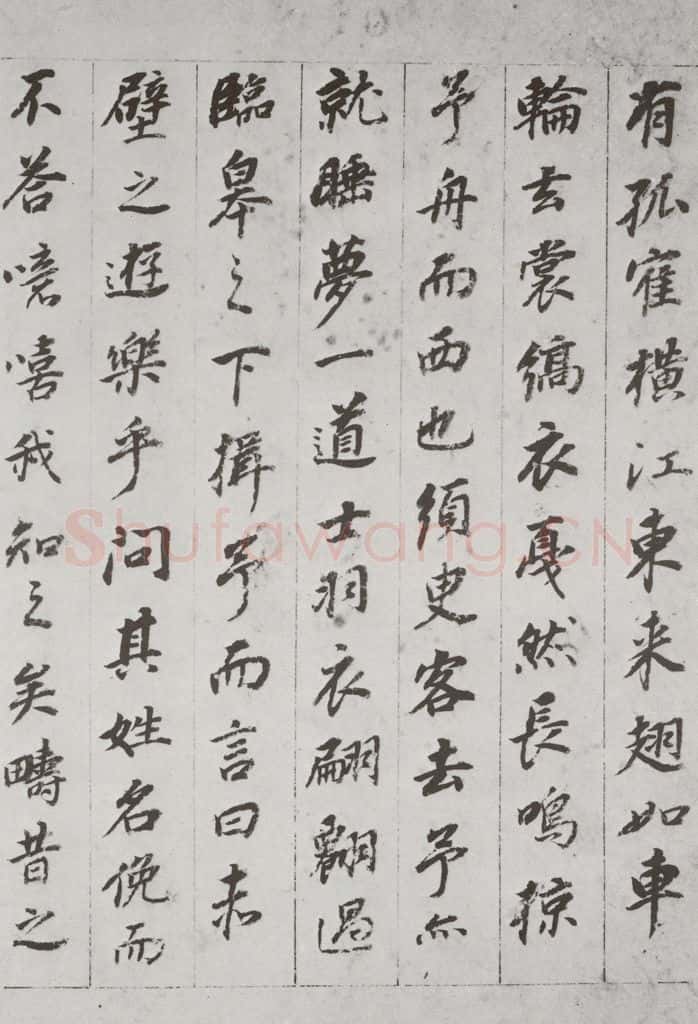 有孤雀横江東来翅如車
輪玄裳縞衣戛然長鳴掠
予舟而西也須臾客去予亦
就睡夢一道士羽衣翩翩過
臨皋之下揖予而言曰赤
壁之遊樂乎問其姓名俛而
不答嗚嘻我知之矣疇昔之
Shufawang.CN